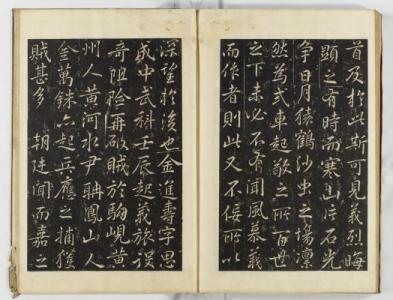 首及於此斯可見義烈晦
顯之有時而寒山片石光
争日月猿鶴沙虫之場凛
然為式車起敬之所百世
之下未必不有聞風慕義
而作者則此又不侫所以
深望於後也金進壽字思
成中武科壬辰起義旅設
奇阻險再破賊於駒峴黄
州人黄河水尹聃鳳山人
金萬銖亦起兵應之捕獲
賊甚多 朝廷聞而嘉之